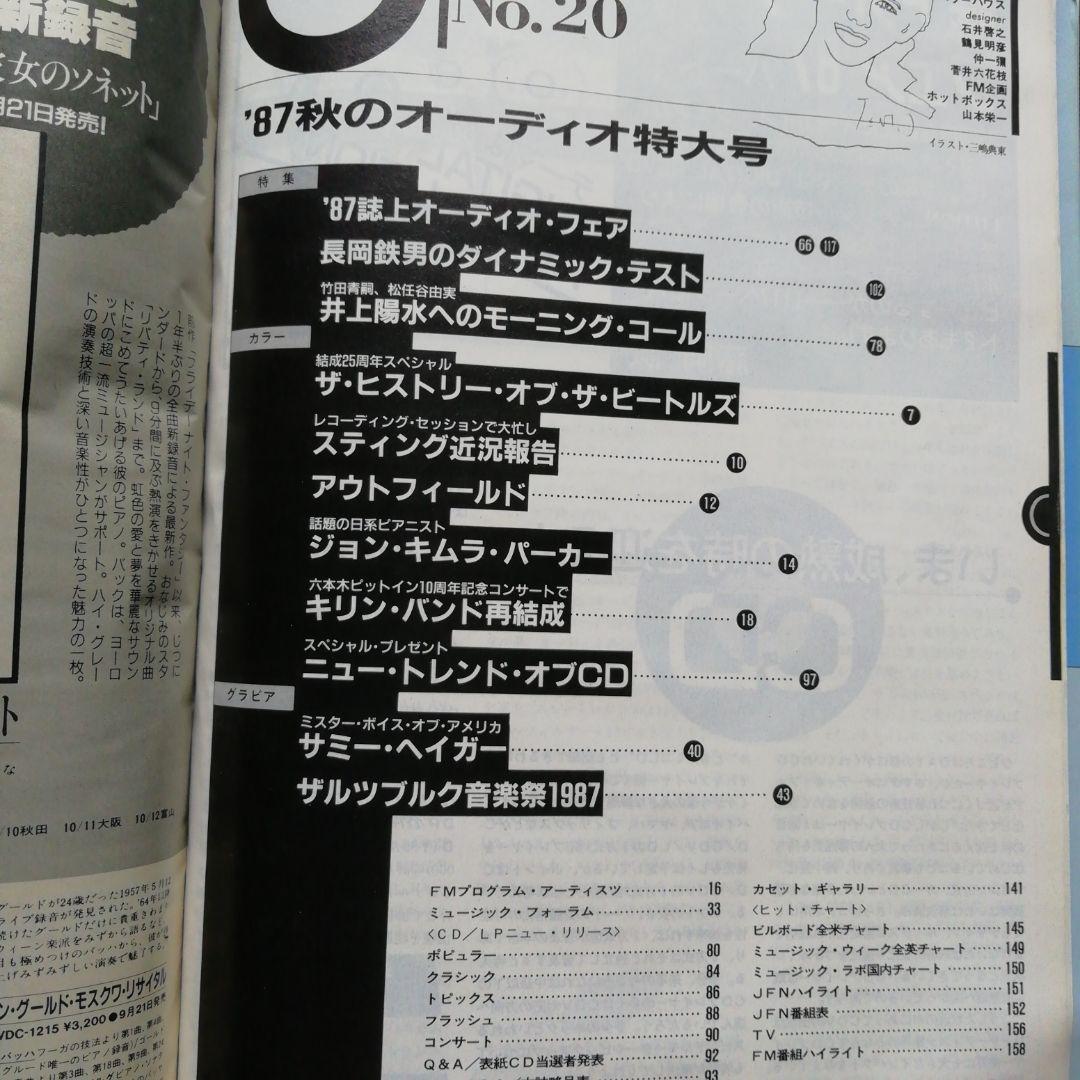 No.20
designer
石井啓之
鶴見明彦
仲一彌
菅井六花枝
FM企画
ホットボックス
山本栄一
イラスト・三嶋典東
'87秋のオーディオ特大号
特集
'87誌上オーディオ・フェア 66 117
長岡鉄男のダイナミック・テスト 102
竹田青嗣、松任谷由実
井上陽水へのモーニング・コール 78
カラー
結成25周年スペシャル
ザ・ヒストリー・オブ・ザ・ビートルズ 7
レコーディング・セッションで大忙し
スティング近況報告 10
アウトフィールド 12
話題の日系ピアニスト
ジョン・キムラ・パーカー 14
六本木ピットイン10周年記念コンサートで
キリン・バンド再結成 18
スペシャル・プレゼント
ニュー・トレンド・オブCD 97
グラビア
ミスター・ボイス・オブ・アメリカ
サミー・ヘイガー 40
ザルツブルク音楽祭1987 43
FMプログラム・アーティスツ 16
ミュージック・フォーラム 33
〈CD/LPニュー・リリース〉
ポピュラー 80
クラシック 84
トピックス 86
フラッシュ 88
コンサート 90
Q&A/表紙CD当選者発表 92
93
カセット・ギャラリー 141
〈ヒット・チャート〉
ビルボード全米チャート 145
ミュージック・ウィーク全英チャート 149
ミュージック・ラボ国内チャート 150
JFNハイライト 151
JFN番組表 152
TV 156
FM番組ハイライト 158
新録音
女のソネット」
月21日発売!
「フライデーナイト・ファンタジー」以来、じつに
1年半ぶりの全曲新録音による最新作。おなじみのスタ
ンダードから、9分間に及ぶ熱演をきかせるオリジナル曲
「リバティ・ランド」まで。虹色の愛と夢を華麗なサウン
ドにこめてうたいあげる彼のピアノ。バックは、ヨーロ
ッパの超一流ミュージシャンがサポート。ハイ・グレー
ドの演奏技術と深い音楽性がひとつになった魅力の一枚。
ト
な
/10秋田 10/11大阪 10/12富山
グールドが24歳だった1957年5月12
ライブ録音が発見された。'64年以降
続けたグールドだけに貴重きわまり
ウィーン楽派をみずから語るなど、
目も極めつけのバッハから、彼が
上げみずみずしい演奏で魅了する。
ン・グールド・モスクワ・リサイタル
VDC-1215 ¥3,200●9月21日発売
バッハ/フーガの技法より第1曲、第4曲、
より第3曲、第18曲、第9曲、第24